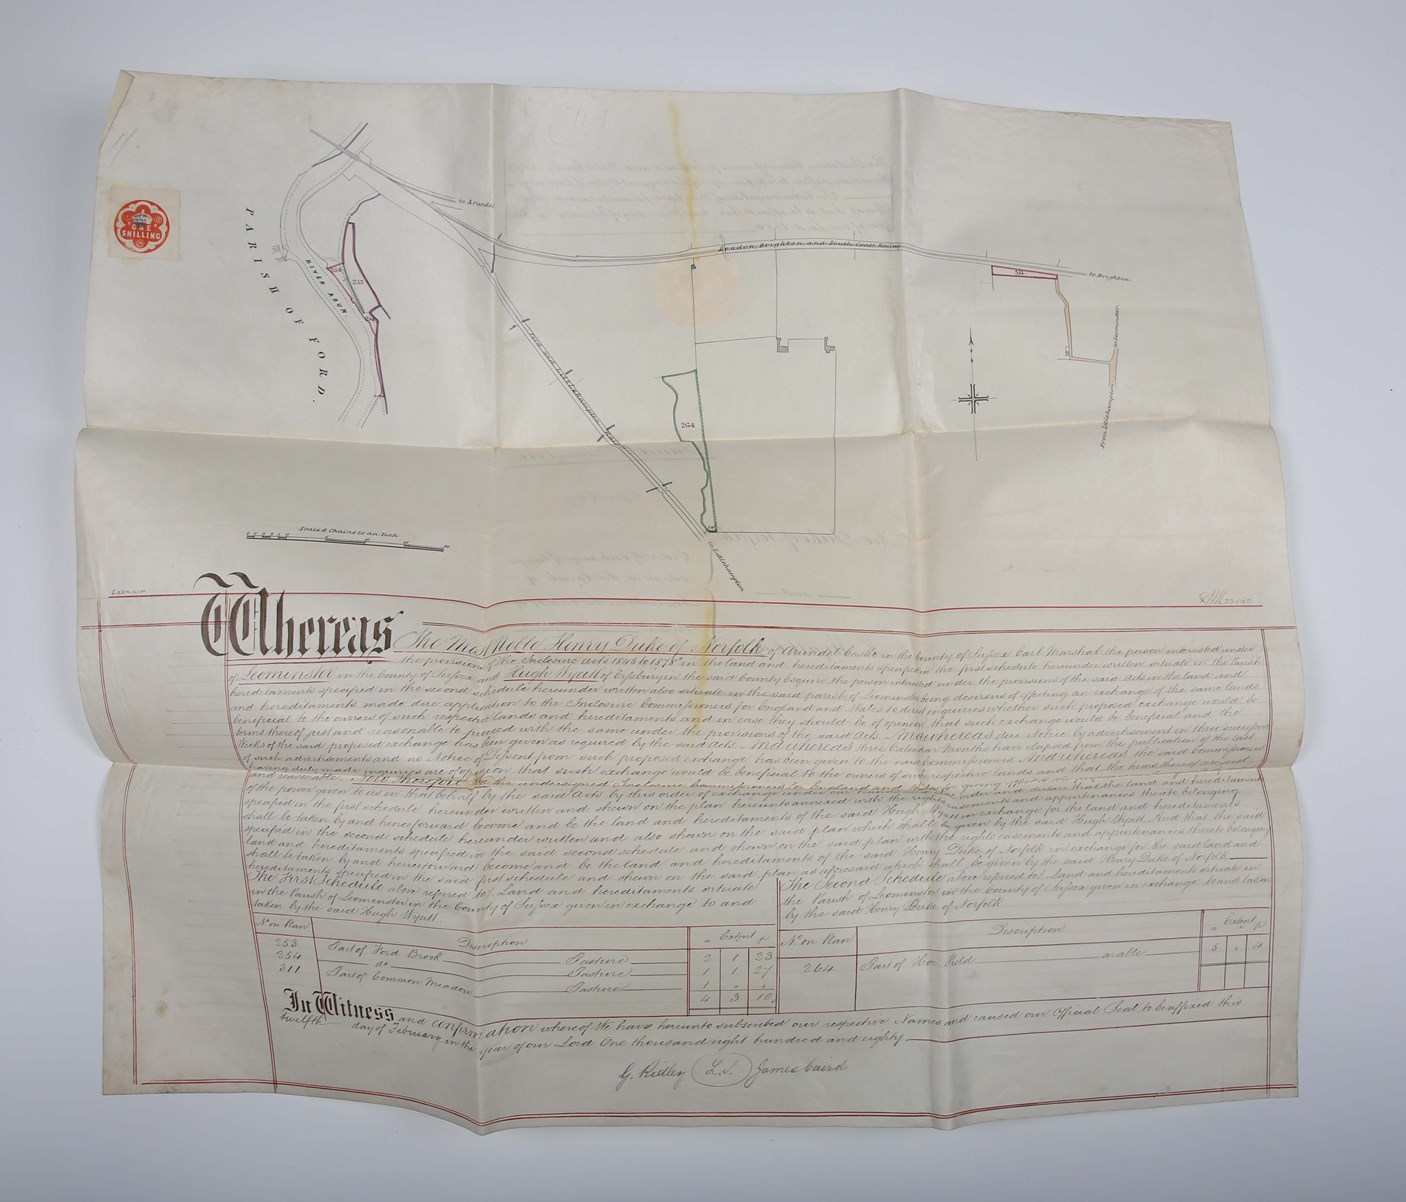 ONE
SHILLING
PARISH OF FORD.
RIVER ARUN
254
253
to Arundel
London, Brighton, and South Coast Railway
311
to Brighton
to Leominster
From Littlehampton
Ford and Littlehampton
264
to Littlehampton
Scale 6 Chains to an Inch
Whereas The Most Noble Henry Duke of Norfolk of Arundel Castle in the County of Sussex Earl Marshal the person interested under
the provisions of the Inclosure Acts 1845 to 1878 in the land and hereditaments specified in the first schedule hereunder written situate in the Parish
of Leominster in the County of Sussex and Hugh Wyatt of Cissbury in the said County Esquire the person interested under the provisions of the said Acts in the land and
hereditaments specified in the second schedule hereunder written also situate in the said parish of Leominster being desirous of effecting an exchange of the same lands
and hereditaments made due application to the Inclosure Commissioners for England and Wales to direct inquiries whether such proposed exchange would be
beneficial to the owners of such respective lands and hereditaments and in case they should be of opinion that such exchange would be beneficial and the
terms thereof just and reasonable to proceed with the same under the provisions of the said Acts. And whereas due notice by advertisement in three successive
weeks of the said proposed exchange has been given as required by the said Acts. And whereas three Calendar Months have elapsed from the publication of the last
of such advertisements and no Notice of Dissent from such proposed exchange has been given to the said Commissioners And whereas the said Commissioners
having duly made inquiries are of opinion that such exchange would be beneficial to the owners of such respective lands and that the terms thereof are just
and reasonable Now Therefore We the undersigned Inclosure Commissioners for England and Wales
of the power given to us in that behalf by the said Acts by this order of exchange under our declare that the land and hereditaments
specified in the first schedule hereunder written and shown on the plan hereunto annexed with the rights easements and appurtenances thereto belonging
shall be taken by and henceforward become and be the land and hereditaments of the said Hugh Wyatt in exchange for the land and hereditaments
specified in the second schedule hereunder written and also shown on the said plan which shall be given by the said Hugh Wyatt And that the said
land and hereditaments specified in the said second schedule and shown on the said plan with the rights easements and appurtenances thereto belonging
shall be taken by and henceforward become and be the land and hereditaments of the said Henry Duke of Norfolk in exchange for the said land and
hereditaments specified in the said first schedule and shown on the said plan as aforesaid which shall be given by the said Henry Duke of Norfolk
The First Schedule above referred to Land and hereditaments situate
in the Parish of Leominster in the County of Sussex given in exchange to and
taken by the said Hugh Wyatt
The Second Schedule above referred to Land and hereditaments situate in
the Parish of Leominster in the County of Sussex given in exchange to and taken
by the said Henry Duke of Norfolk
No on Plan Description a Extent p
253 Part of Ford Brook Pasture 2 1 23
254 do Pasture 1 1 27
311 Part of Common Meadow Pasture 1 " "
4 3 10
No on Plan Description a Extent p
264 Part of Hoe Field arable 5 " 4
In Witness and confirmation whereof We have hereunto subscribed our respective Names and caused our Official Seal to be affixed this
twelfth day of February in the year of our Lord One thousand eight hundred and eighty
G. Ridley L.S. James Caird